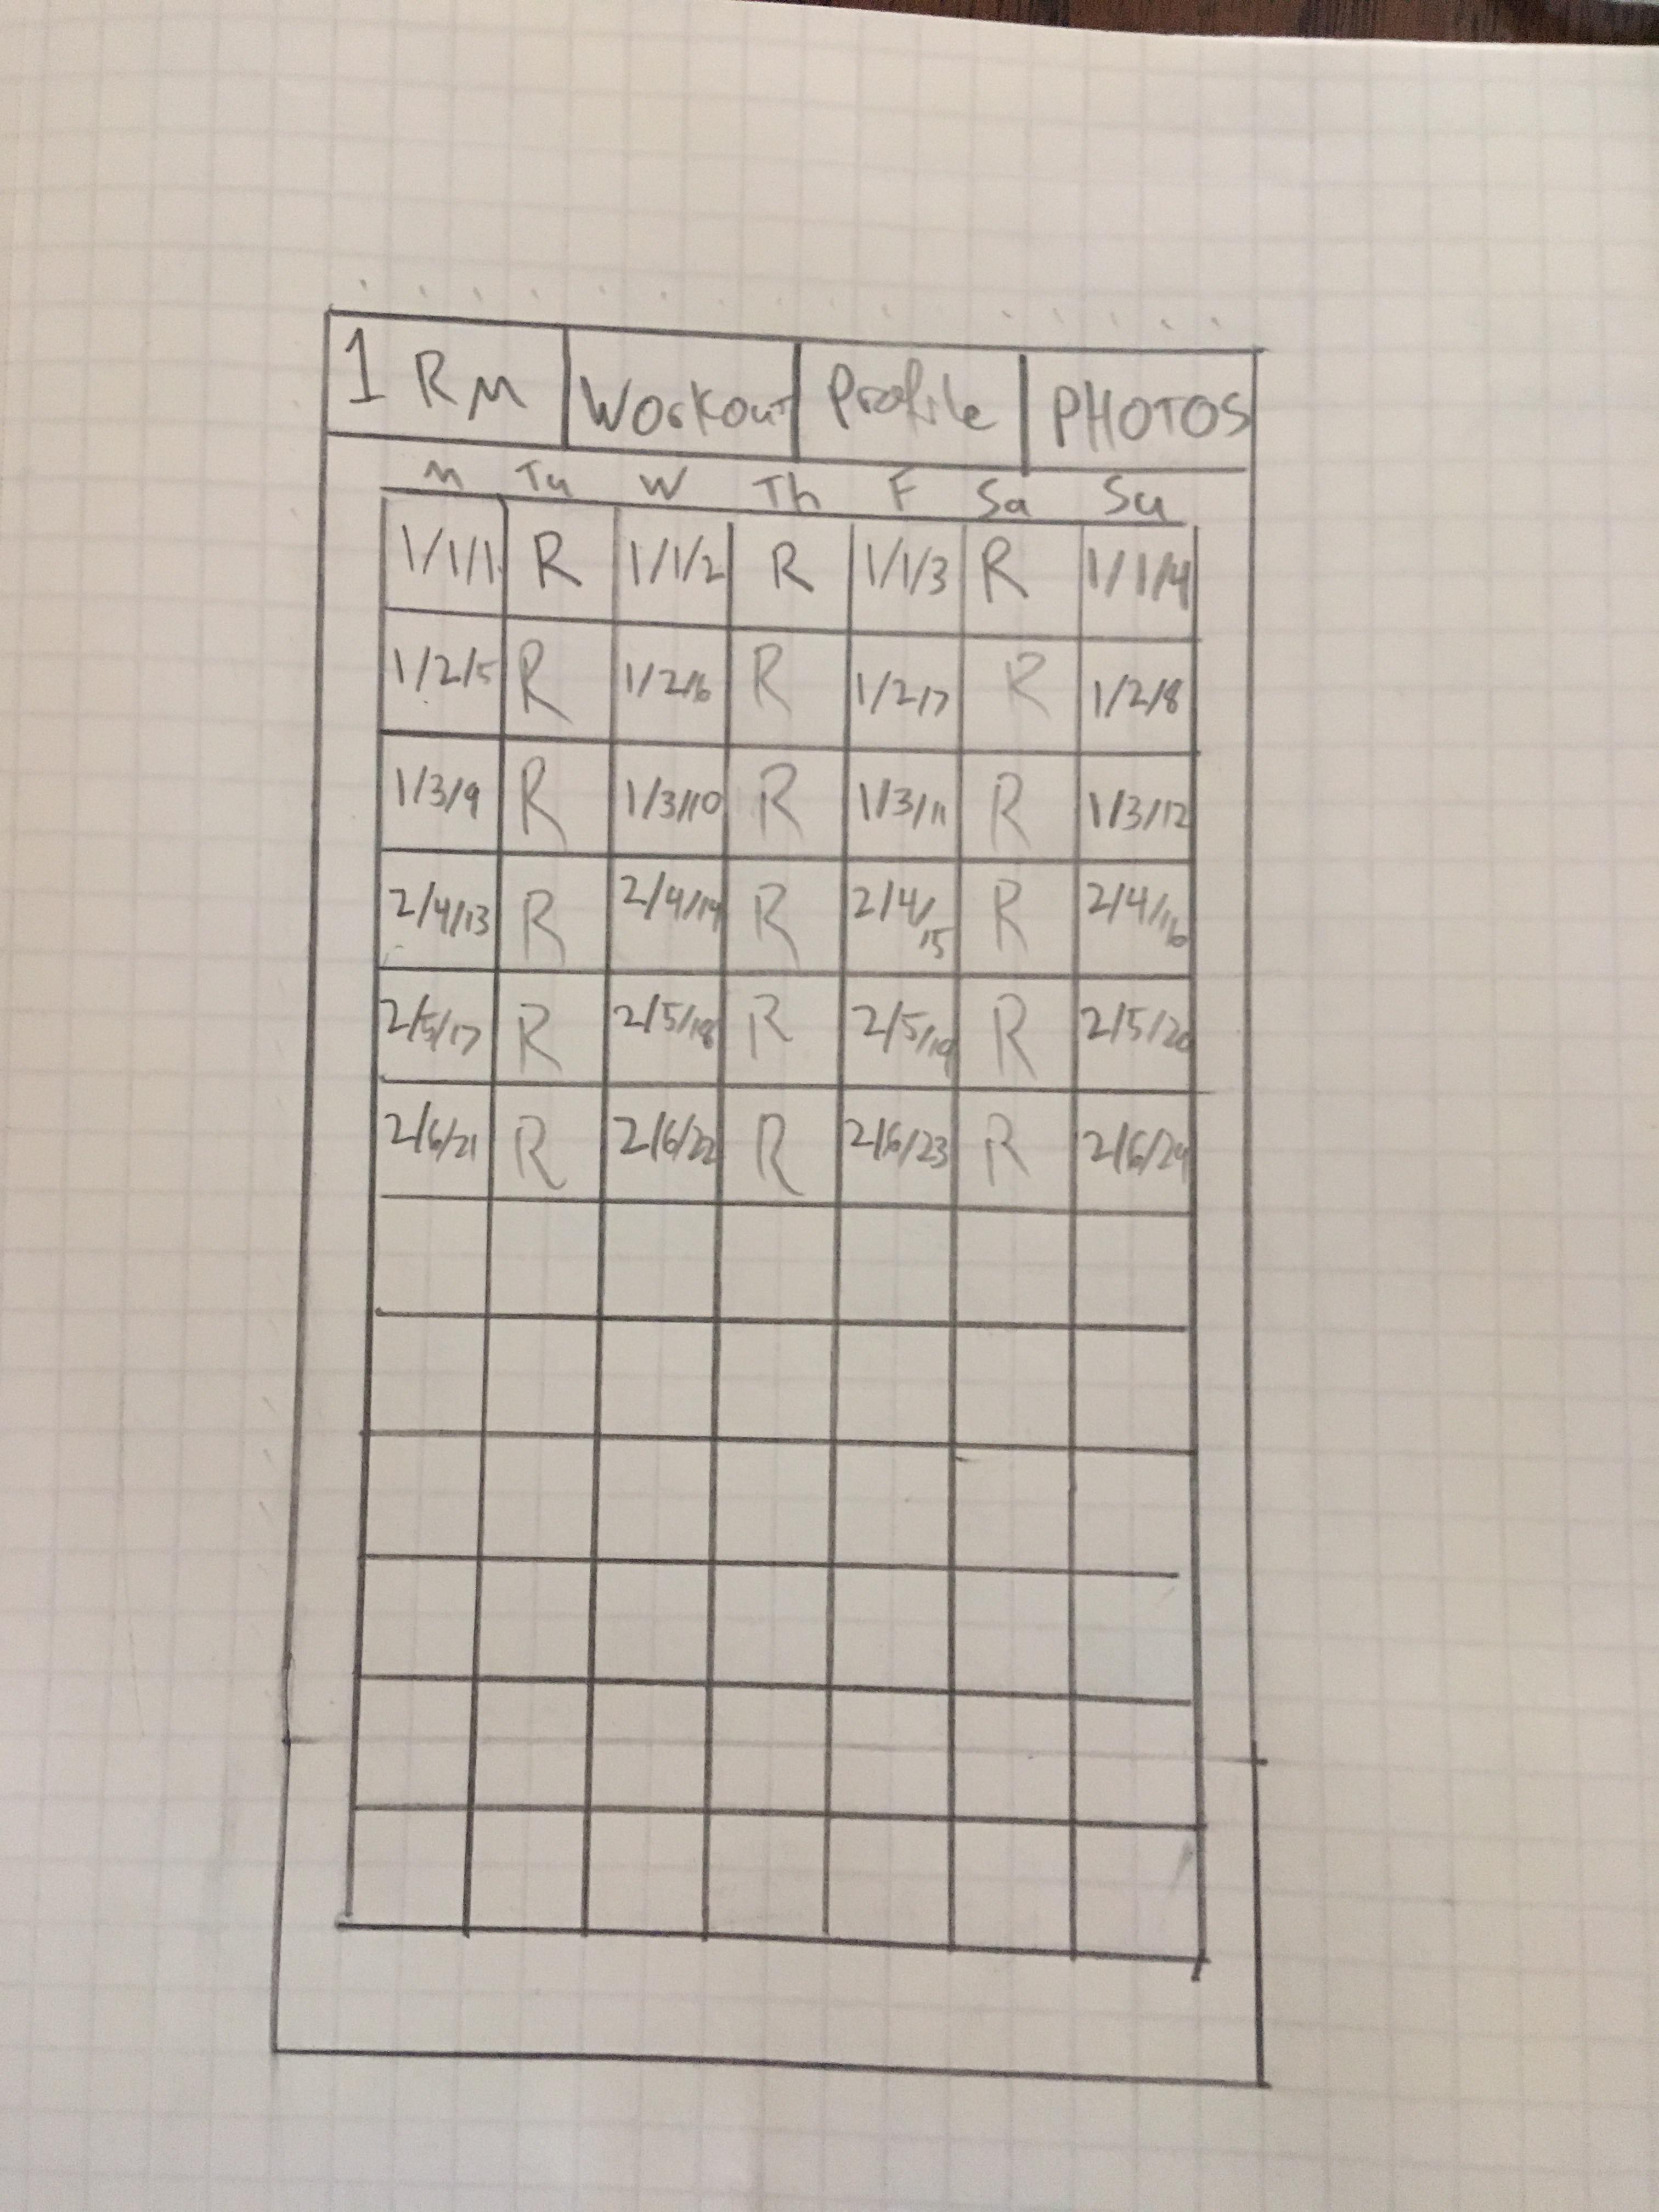 1 RM Workout Profile PHOTOS
M Tu W Th F Sa Su
1/1/1 R 1/1/2 R 1/1/3 R 1/1/4
1/2/5 R 1/2/6 R 1/2/7 R 1/2/8
1/3/9 R 1/3/10 R 1/3/11 R 1/3/12
2/4/13 R 2/4/14 R 2/4/15 R 2/4/16
2/5/17 R 2/5/18 R 2/5/19 R 2/5/20
2/6/21 R 2/6/22 R 2/6/23 R 2/6/24